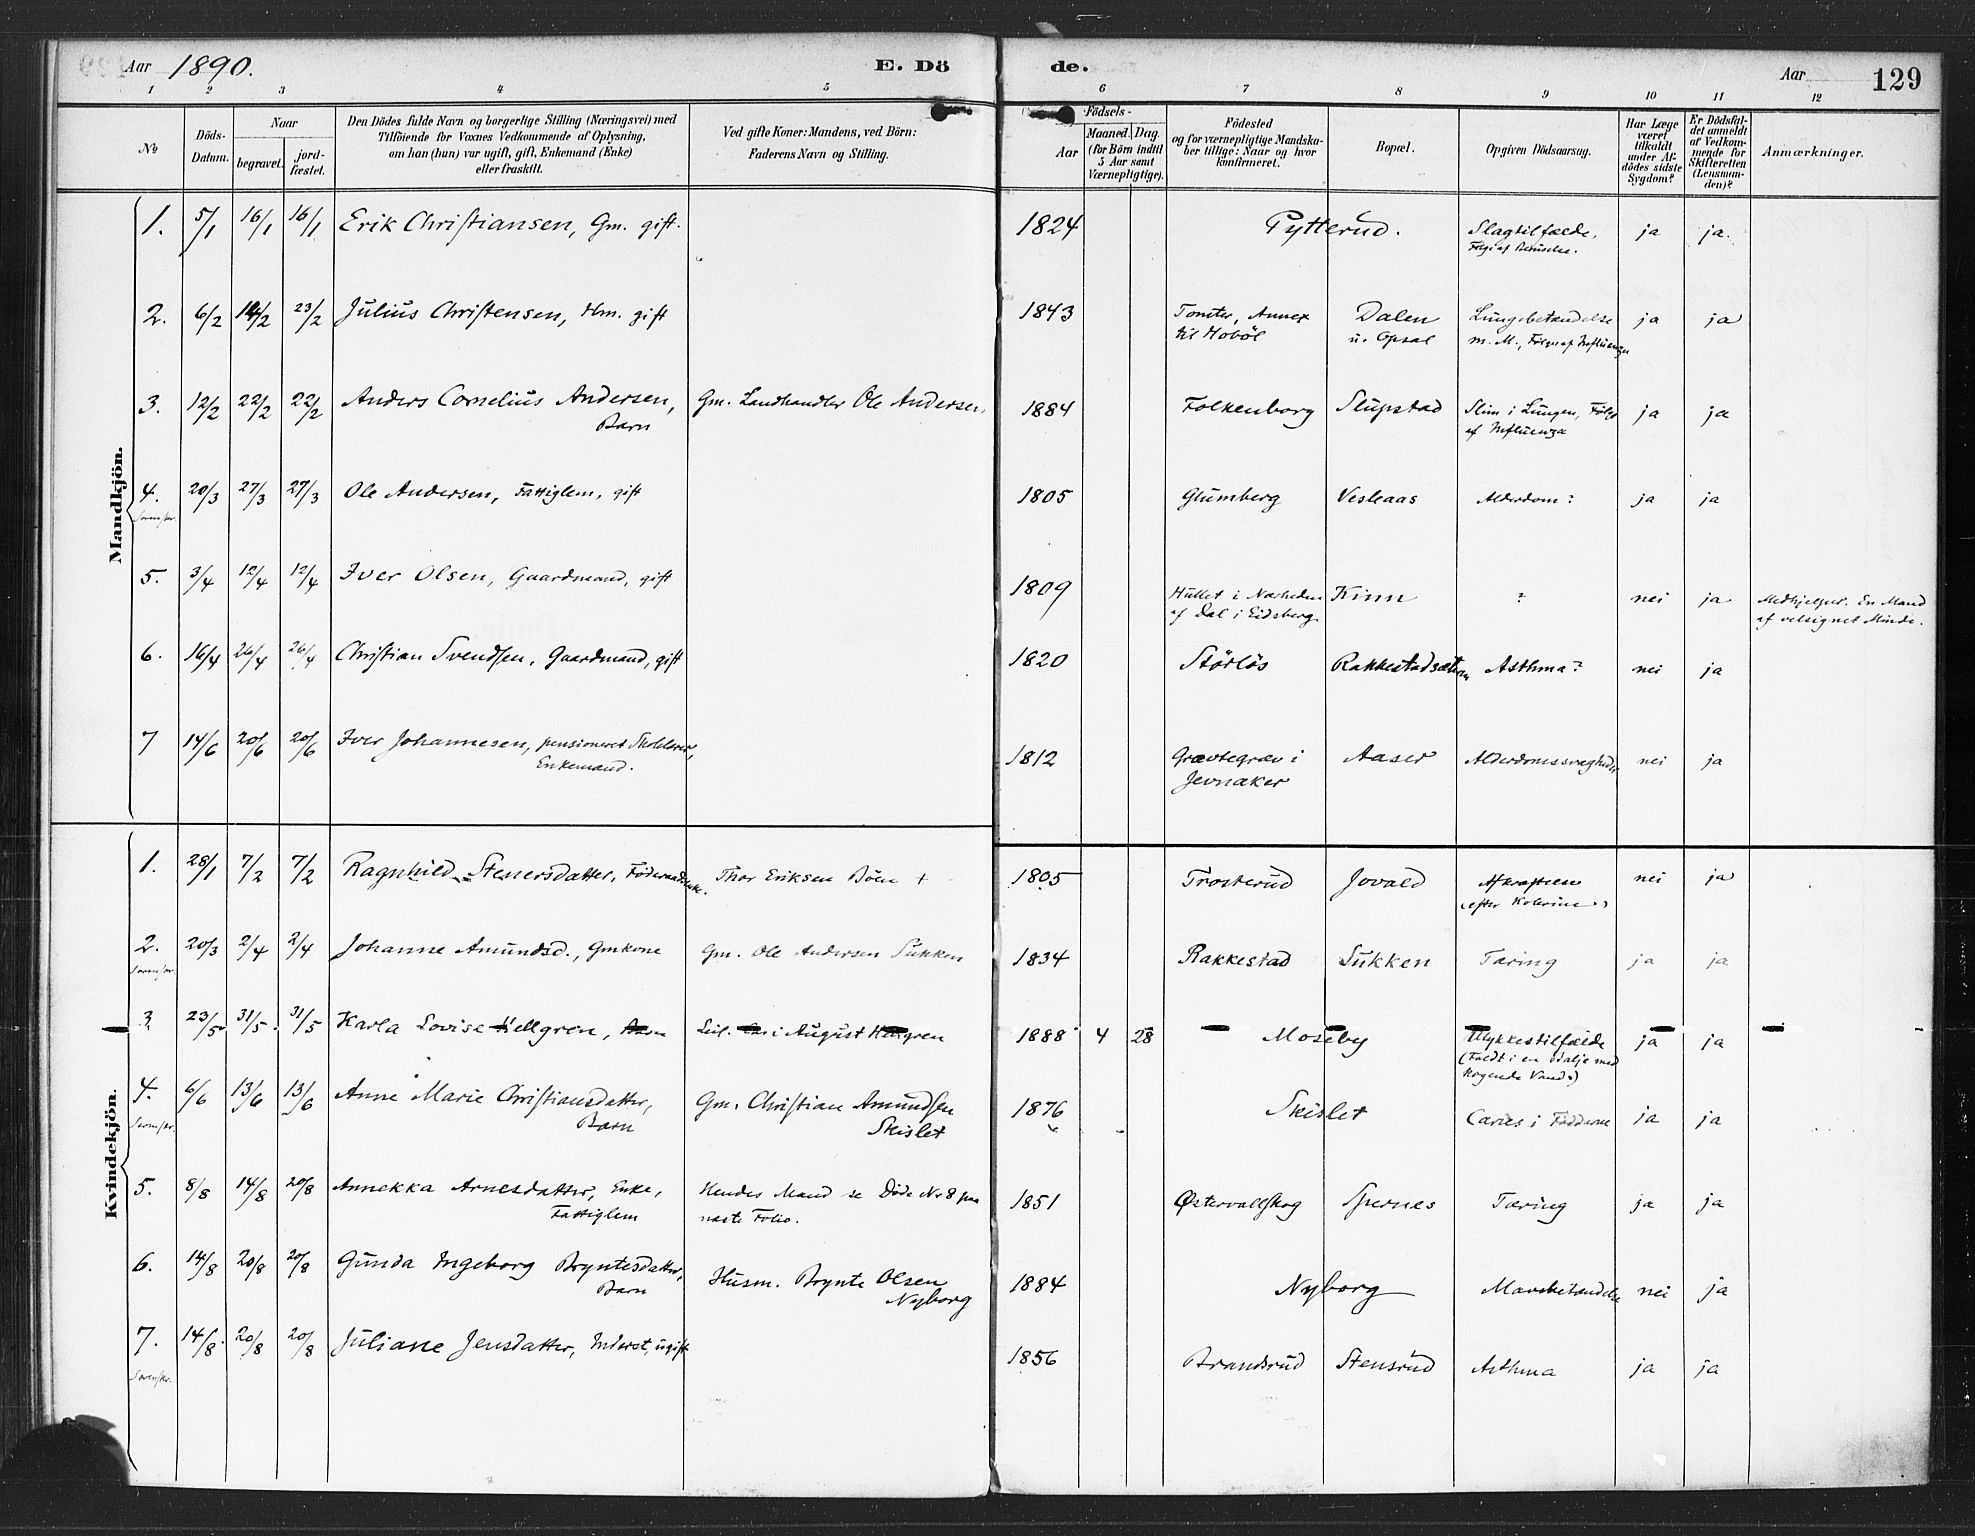 Aar 1890. E. Dö de. Aar 129
1 2 3 4 5 6 7 8 9 10 11 12
№
Döds-
Datum.
Naar
begravet.
jord-
fæstet.
Den Dödes fulde Navn og borgerlige Stilling (Næringsvei) med
Tilföiende for Voxnes Vedkommende af Oplysning,
om han (hun) var ugift, gift, Enkemand (Enke)
eller fraskilt.
Ved gifte Koner: Mandens, ved Börn:
Faderens Navn og Stilling.
Födsels-
Aar
Maaned. Dag.
(for Börn indtil
5 Aar samt
Værnepligtige).
Födested
og for værnepligtige Mandska-
ber tillige: Naar og hvor
konfirmeret.
Bopæl.
Opgiven Dödsaarsag.
Har Læge
været
tilkaldt
under Af-
dödes sidste
Sygdom?
Er Dödsfal-
det anmeldt
af Vedkom-
mende for
Skifteretten
(Lensman-
den)?
Anmærkninger.
Mandkjön.
1. 5/1 16/1 16/1 Erik Christiansen, Gm. gift. 1824 Pytterud. Slagtilfælde, ja ja.
Følge af Beruselse.
2. 6/2 14/2 23/2 Julius Christensen, Hm. gift 1843 Tomter, Annex Dalen Lungebetændelse ja ja
til Hobøl u. Opsal m. M., Følge af Influenza
3. 12/2 22/2 22/2 Anders Cornelius Andersen, Gm. Landhandler Ole Andersen, 1884 Folkenborg Slupstad Slim i Lungen, Følge ja ja
Barn af Influenza
4. 20/3 27/3 27/3 Ole Andersen, Fattiglem, gift 1805 Glumberg Vesleaas Alderdom? ja ja
5. 3/4 12/4 12/4 Iver Olsen, Gaardmand, gift 1809 Hullet i Nærheden Kinn ? nei ja Medhjelper. En Mand
af Dal i Eidsberg af velsignet Minde.
6. 16/4 26/4 26/4 Christian Svendsen, Gaardmand, gift 1820 Störlös Rakkestadsæteren Asthma? nei ja
7 14/6 20/6 20/6 Iver Johannesen, pensioneret Skolelærer, 1812 Grævtegrav i Aaser Alderdomssvaghed nei ja
Enkemand. Jevnaker
Kvindekjön.
1. 28/1 7/2 7/2 Ragnhild Stenersdatter, Føderaadsenke. Thor Eriksen Böen + 1805 Trosterud Jovald Afkræftelse nei ja
(efter Kolerine.)
2. 20/3 2/4 2/4 Johanne Amundsd., Gmkone Gm. Ole Andersen Sukken 1834 Rakkestad Sukken Tæring ja ja
3 23/5 31/5 31/5 Karla Lovise Hellgren, Barn August Hellgren 1888 4 28 Moseby Ulykkestilfælde ja ja
(Faldt i en Balje med
kogende Vand.)
4. 6/6 13/6 13/6 Anne Marie Christiansdatter, Gm. Christian Amundsen 1876 Skislet Caries i Fødderne ja ja
Barn Skislet
5. 8/8 14/8 20/8 Annekka Arnesdatter, Enke, Hendes Mand se Døde Nr 8 paa 1851 Østervallskog Spernes Tæring ja ja
Fattiglem næste Folio.
6. 14/8 20/8 20/8 Gunda Ingeborg Bryntesdatter, Husm. Brynte Olsen 1884 Nyborg Mavebetændelse nei ja
Barn Nyborg
7. 14/8 20/8 20/8 Juliane Jensdatter, Inderst, ugift 1856 Brandsrud Stensrud Asthma ja ja